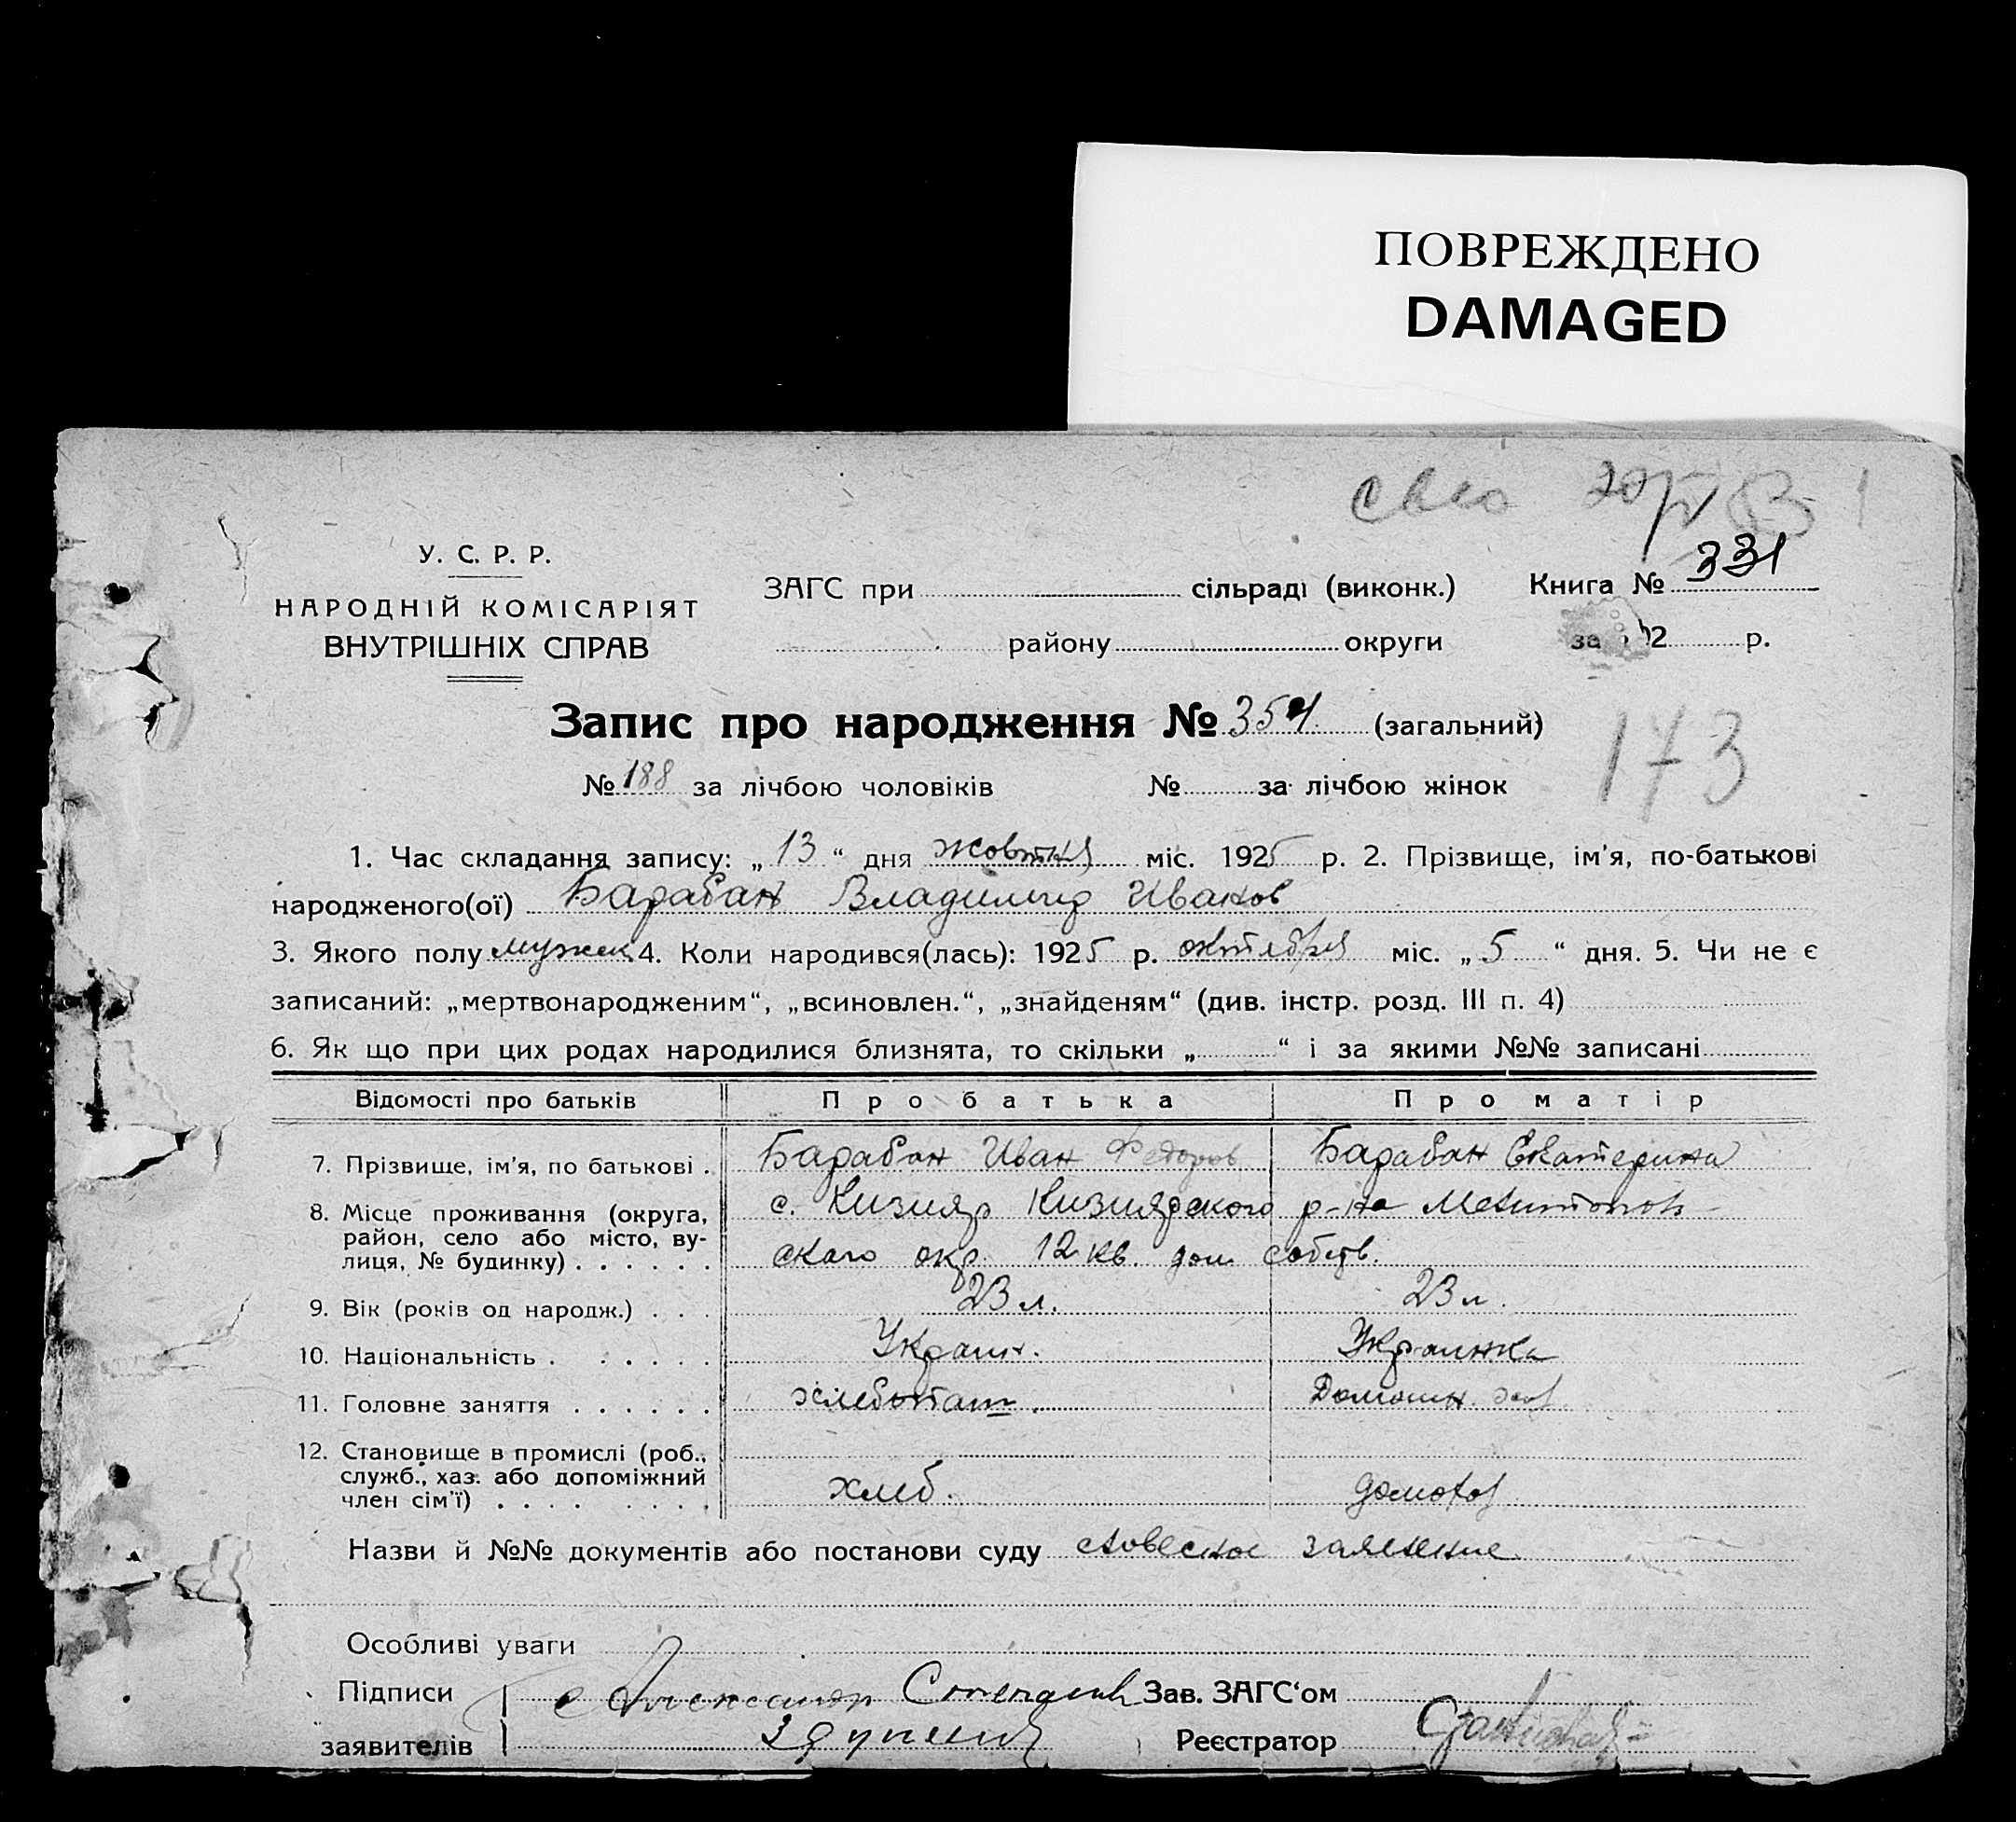 ПОВРЕЖДЕНО
DAMAGED
У. С. Р. Р.
НАРОДНІЙ КОМІСАРІЯТ
ВНУТРІШНІХ СПРАВ
ЗАГС при сільраді (виконк.)
району округи
Книга № 331
за 192 р.
Запис про народження № 354 (загальний)
173
№ 188 за лічбою чоловіків № за лічбою жінок
1. Час складання запису: „ 13 “ дня жовтня міс. 1925 р. 2. Прізвище, ім'я, по-батькові
народженого(ої) Барабан Владимир Иванов
3. Якого полу мужск 4. Коли народився(лась): 1925 р. октября міс. „ 5 “ дня. 5. Чи не є
записаний: „мертвонародженим“, „всиновлен.“, „знайденям“ (див. інстр. розд. III п. 4)
6. Як що при цих родах народилися близнята, то скільки „ “ і за якими №№ записані
Відомості про батьків Про батька Про матір
7. Прізвище, ім'я, по батькові . Барабан Иван Федоров Барабан Екатерина
8. Місце проживання (округа, с. Кизияр Кизиярского р-на Мелитополь-
район, село або місто, ву-
лиця, № будинку) . . . . . . ского окр. 12 кв. дом собств.
9. Вік (років од народж.) . . . 23 л. 23 л.
10. Національність . . . . . . Украин. Украинка
11. Головне заняття . . . . . . хлебопаш. Домашн. хоз
12. Становище в промислі (роб.,
служб., хаз. або допоміжний
член сім'ї) . . . . . . . . хлеб. домохоз
Назви й №№ документів або постанови суду словесное заявление
Особливі уваги
Підписи Александр Зав. ЗАГС‘ом
заявителів Реєстратор